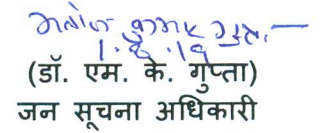 मनोज कुमार गुप्ता
1.8.19
(डॉ. एम. के. गुप्ता)
जन सूचना अधिकारी